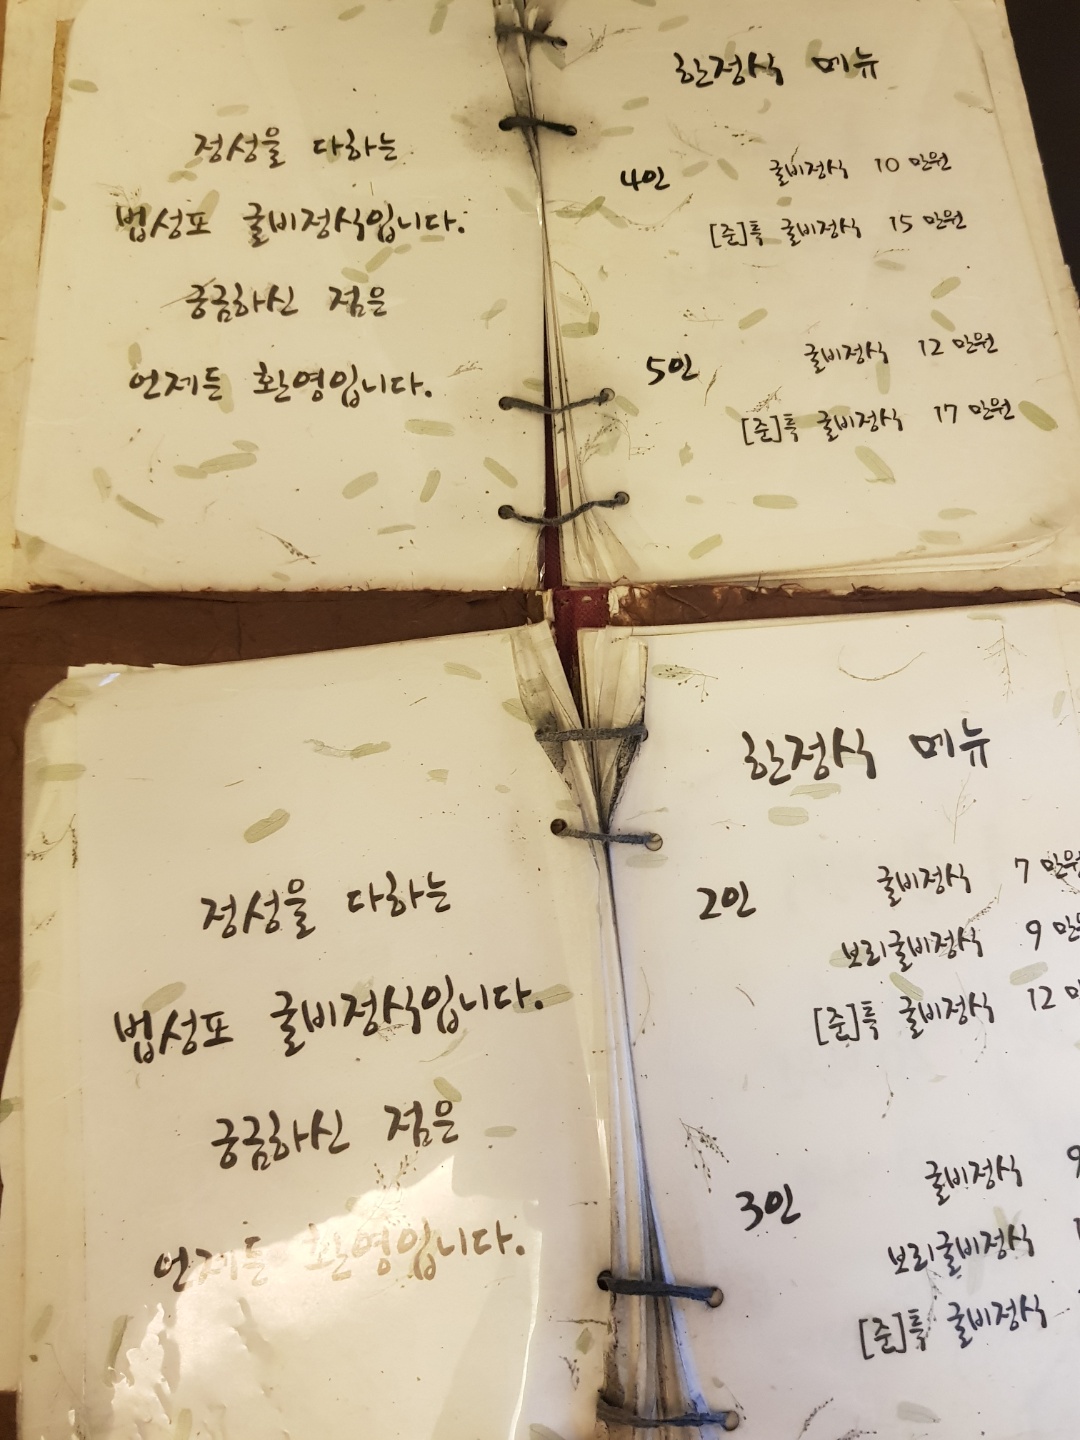 정성을 다하는
법성포 굴비정식입니다.
궁금하신 점은
언제든 환영입니다.
한정식 메뉴
4인 굴비정식 10만원
[준]특 굴비정식 15만원
5인 굴비정식 12만원
[준]특 굴비정식 17만원
정성을 다하는
법성포 굴비정식입니다.
궁금하신 점은
언제든 환영입니다.
한정식 메뉴
2인 굴비정식 7만원
보리굴비정식 9만원
[준]특 굴비정식 12
3인 굴비정식 9
보리굴비정식
[준]특 굴비정식